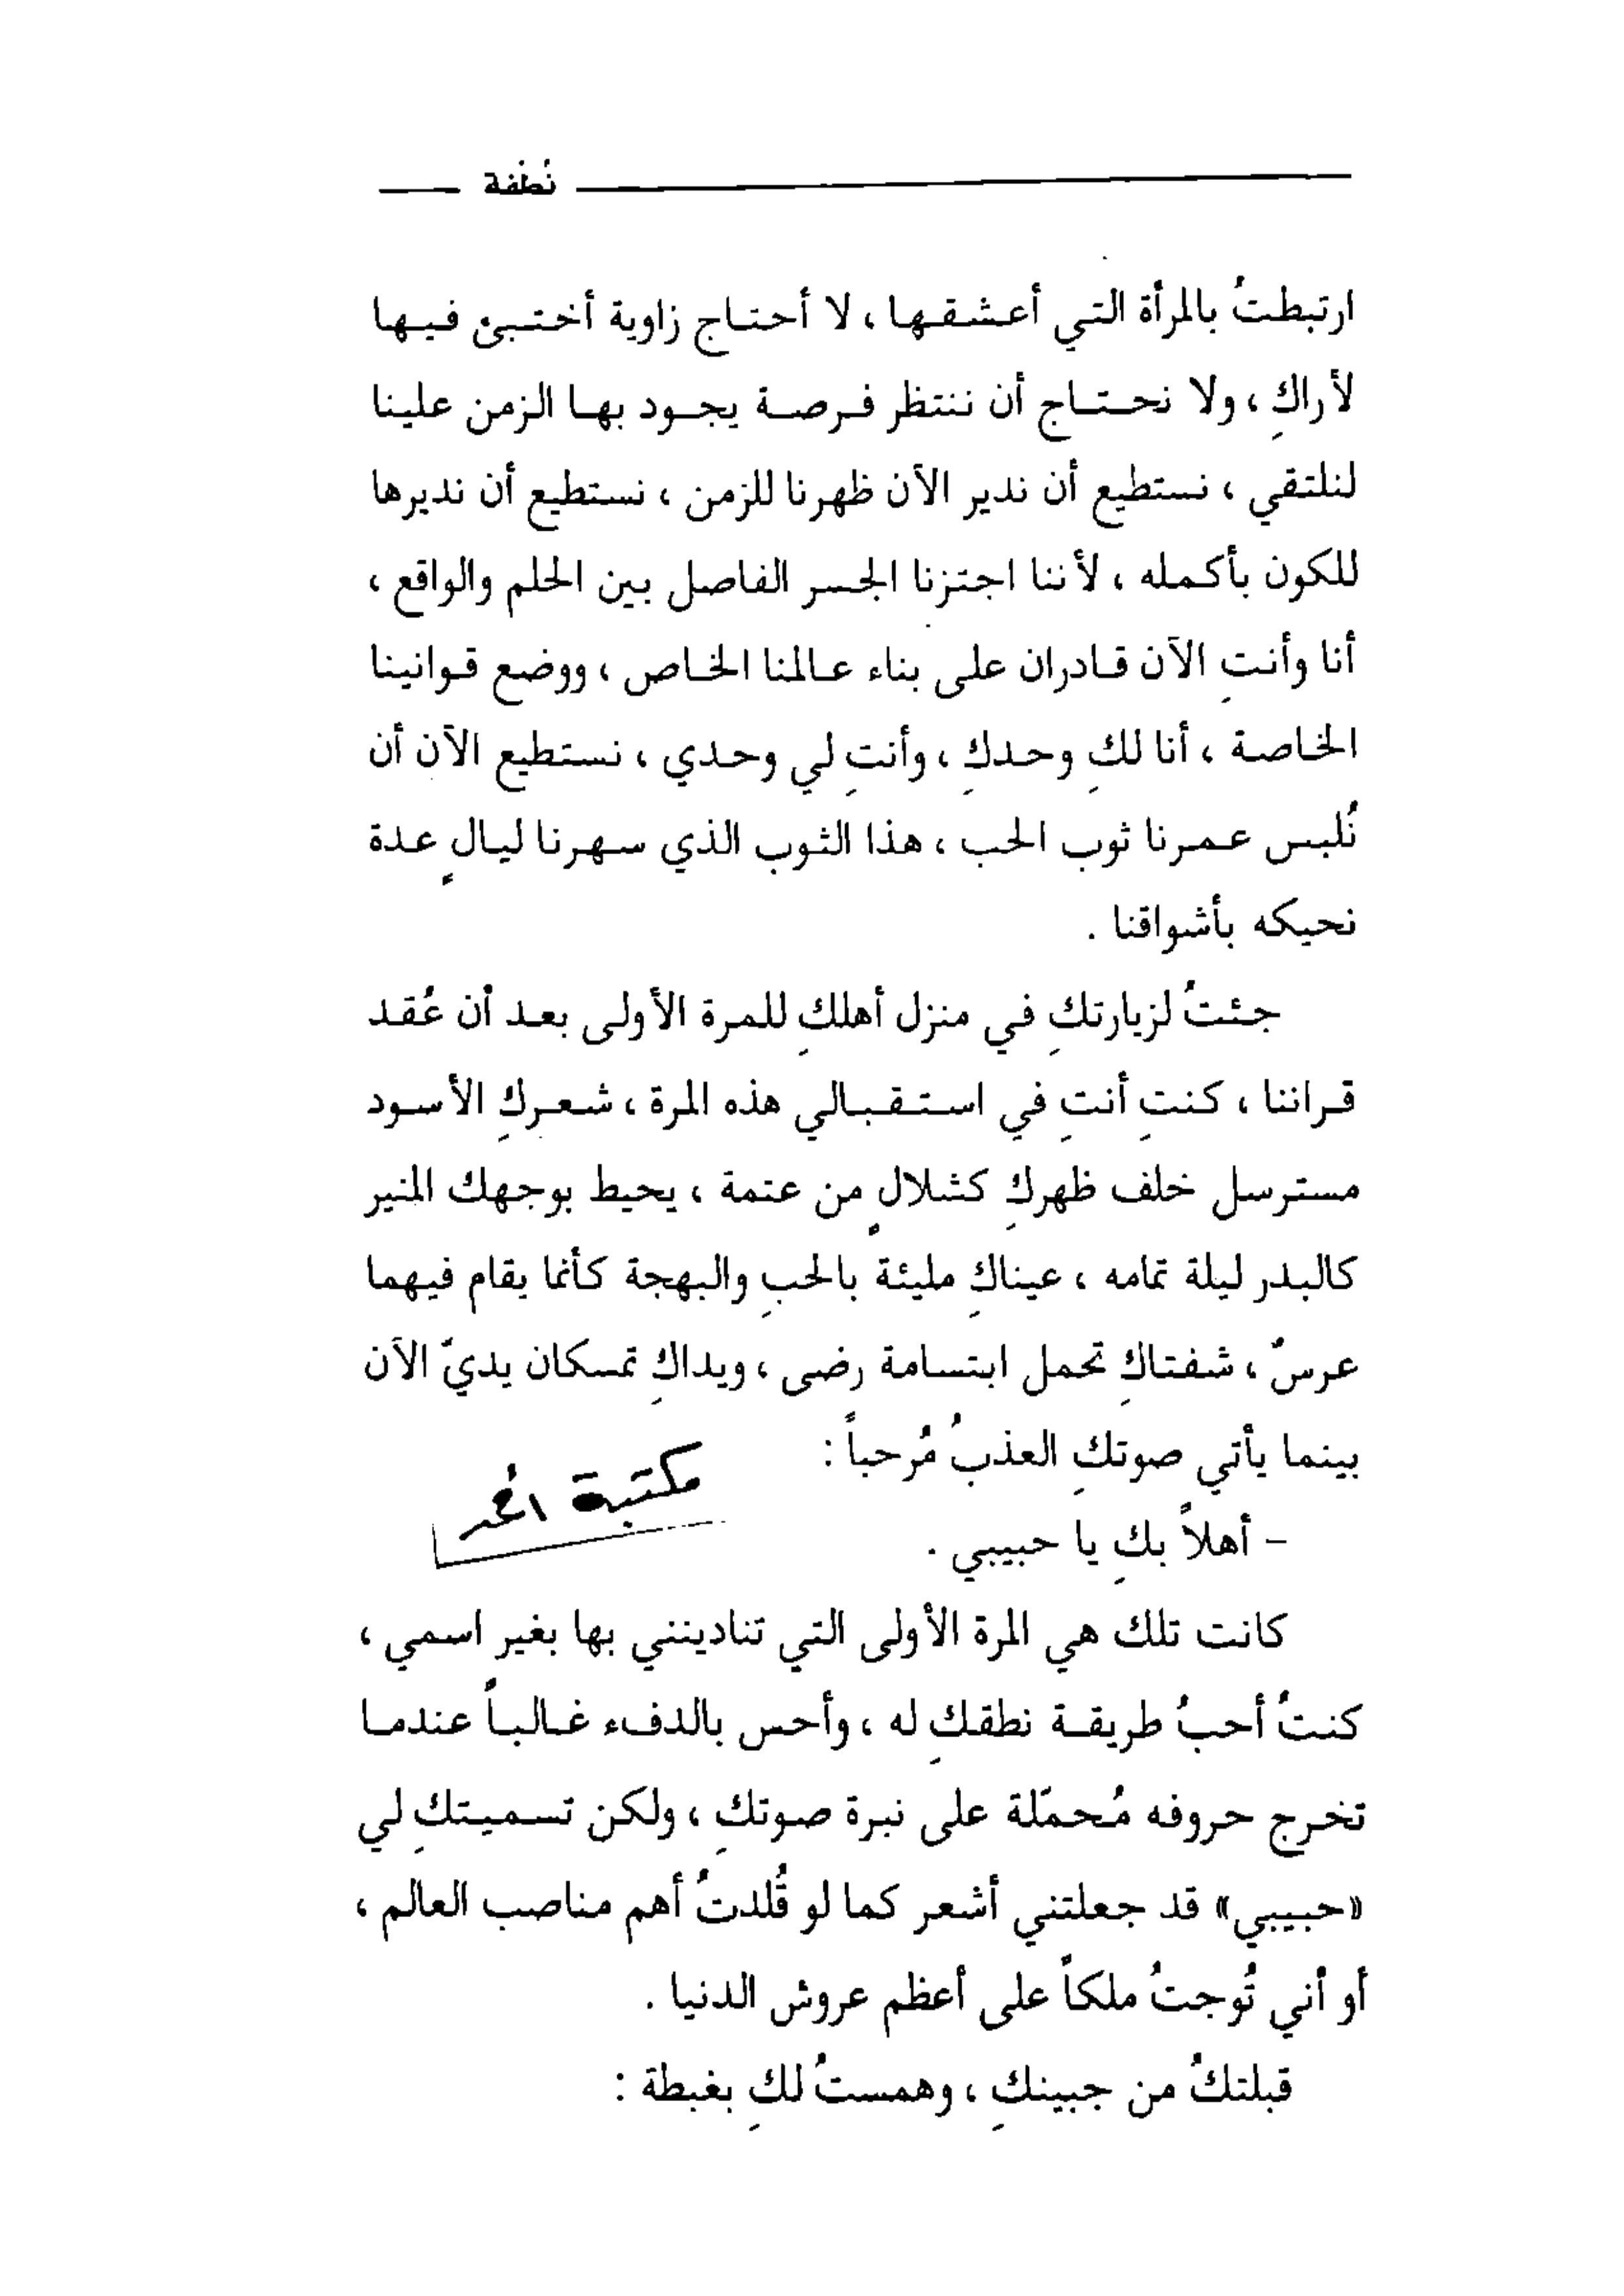 نُطفة
ارتبطتُ بالمرأة التي أعشقها ، لا أحتاج زاوية أختبئ فيها
لأراكِ ، ولا نحتاج أن ننتظر فرصة يجود بها الزمن علينا
لنلتقي ، نستطيع أن ندير الآن ظهرنا للزمن ، نستطيع أن نديرها
للكون بأكمله ، لأننا اجتزنا الجسر الفاصل بين الحلم والواقع ،
أنا وأنتِ الآن قادران على بناء عالمنا الخاص ، ووضع قوانينا
الخاصة ، أنا لكِ وحدكِ ، وأنتِ لي وحدي ، نستطيع الآن أن
نُلبس عمرنا ثوب الحب ، هذا الثوب الذي سهرنا ليالٍ عدة
نحيكه بأشواقنا .
جئتُ لزيارتكِ في منزل أهلكِ للمرة الأولى بعد أن عُقد
قراننا ، كنتِ أنتِ في استقبالي هذه المرة ، شعركِ الأسود
مسترسل خلف ظهركِ كشلالٍ من عتمة ، يحيط بوجهك المنير
كالبدر ليلة تمامه ، عيناكِ مليئة بالحبِ والبهجة كأنما يقام فيهما
عرسٌ ، شفتاكِ تحمل ابتسامة رضى ، ويداكِ تمسكان يديّ الآن
بينما يأتي صوتكِ العذبُ مُرحباً :
مكتبة
– أهلاً بكِ يا حبيبي .
كانت تلك هي المرة الأولى التي تنادينني بها بغير اسمي ،
كنتُ أحبُ طريقة نطقكِ له ، وأحس بالدفء غالباً عندما
تخرج حروفه مُحمّلة على نبرة صوتكِ ، ولكن تسميتكِ لي
«حبيبي» قد جعلتني أشعر كما لو قُلدتُ أهم مناصب العالم ،
أو أني تُوجتُ ملكاً على أعظم عروش الدنيا .
قبلتكُ من جبينكِ ، وهمستُ لكِ بغبطة :